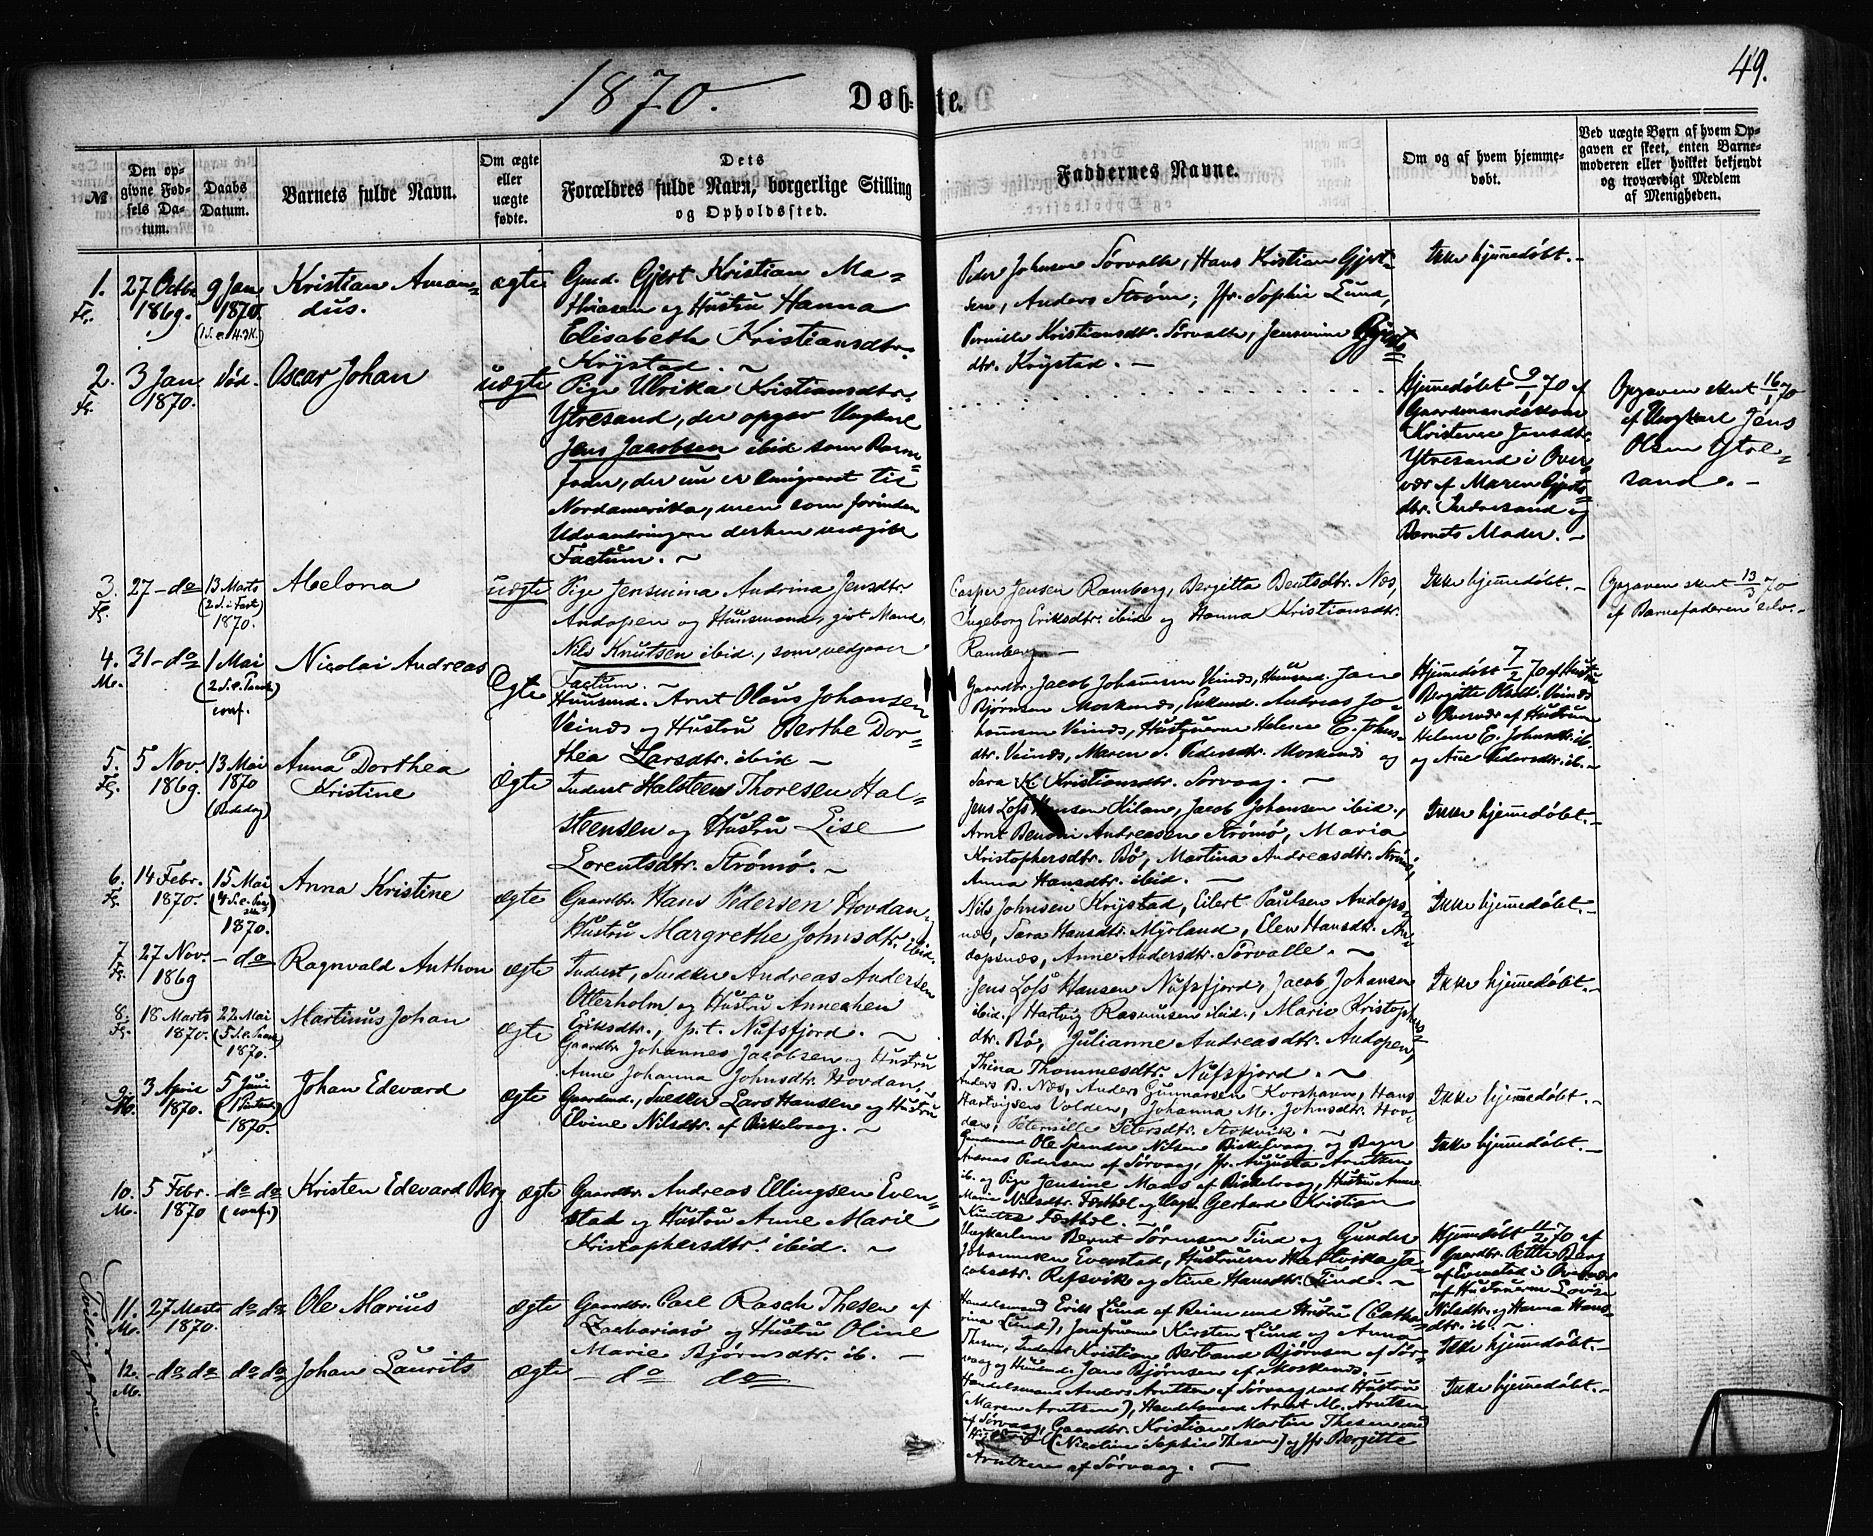 1870.
Døbte.
49.
№
Den opgivne Fødsels Datum.
Daabs Datum.
Barnets fulde Navn.
Om ægte eller uægte fødte.
Dets Forældres fulde Navn, borgerlige Stilling og Opholdssted.
Faddernes Navne.
Om og af hvem hjemmedøbt.
Ved uægte Børn af hvem Opgaven er skeet, enten Barnemoderen eller hvilket bekjendt og troværdigt Medlem af Menigheden.
1. Fl.
27 Octbr 1869.
9 Jan 1870.
Kristian Amandus.
ægte
Gmd. Gjert Kristian Mathiasen og Hustru Hanna
Elisabeth Kristiansdtr.
Krystad. ~
Peder Johnsen Sørvalle, Hans Kristian Gjertsen, Anders Strøm; Jfr. Sophie Lund,
Pernille Kristiansdtr. Sørvalle, Jensine Gjertsdtr. Krystad. —
Ikke hjemmedøbt. —
2. Fl.
3 Jan 1870.
død.
Oscar Johan
uægte
Pige Ulrika Kristiansdtr.
Ytresand, der opgav Ungkarl
Jens Jacobsen ibid som Barnefader, der nu er emigreret til
Nordamerika, men som forinden
Udvandringen derhen vedgik
Factum. ~
Hjemmedøbt 9/1 70 af
Gaardmandskone
Kristense Jensdtr.
Ytresand i Overvær af Maren Gjertsdtr. Indresand og
Barnets Moder. —
Opgaven skeet 16/1 70
af Ungkarl Jens
Olsen Ytresand. —
3. Fl.
27 - do
13 Marts (2 S. i Fast) 1870.
Abelona
uægte
Pige Jensmina Andrina Jensdtr.
Andopen og Huusmand, gift Mand,
Nils Knutsen ibid., som vedgaaer
Factum. ~
Casper Jensen Ramberg, Bergitta Bentsdtr. Næs,
Ingeborg Eriksdtr. ibid og Hanna Kristiansdtr.
Ramberg —
Ikke hjemmedøbt. —
Opgaven skeet 13/3 70
af Barnefaderen selv. —
4. M.
31 - do
1 Mai (2 S. e. Paask) conf.
Nicolai Andreas
Ægte
Huusmd. Arnt Olaus Johansen
Veinæs og Hustru Berthe Dorthea Larsdtr. ibid —
Gaardbr. Jacob Johannsen Veinæs, Huusmd. Jan
Bjørnsen Moskenæs, Enkemd. Andreas Johansen Veinæs, Hustruerne Helene E. Johnsdtr. Veinæs, Maren S. Pedersdtr. Moskenæs og
Sara K. Kristiansdtr. Sørvaag. ~
Hjemmedøbt 7/2 70 af Hustru
Bergitte Olsdtr. Veinæs
i Overvær af Hustrun
Helene E. Johnsdtr. ib.
og Ane Pedersdtr. ib. —
5. Fl.
5 Nov. 1869.
13 Mai 1870 (Bededag)
Anna Dorthea Kristine
Ægte
Inderst Halsteen Thoresen Halsteensen og Hustru Lise
Lorentsdtr. Strømø. ~
Jens Loss Hansen Kilan, Jacob Johansen ibid.,
Arnt Benoni Andreasen Strømø, Maria
Kristophersdtr. Bø, Martina Andreasdtr. Strømø,
Anna Hansdtr. ibid. —
Ikke hjemmedøbt. —
6. Fl.
14 Febr. 1870.
15 Mai 1870.
Anna Kristine
ægte
Gaardbr. Hans Pedersen Hovdan,
Hustru Margrethe Johnsdtr. ibid.
Nils Johnsen Krystad, Eilert Paulsen Andopsnæs, Sara Hansdtr. Myrland, Elen Hansdtr. Andopsnæs, Anne Andersdtr. Sørvalle. —
Ikke hjemmedøbt. —
7. Fl.
27 Nov. 1869
- do
Ragnvald Anthon
ægte
Inderst, Snedker Andreas Andersen
Otterholm og Hustru Annechen
Eriksdtr., p.t. Nufsfjord. ~
Jens Loss Hansen Nufsfjord, Jacob Johansen
ibid., Hartvig Rasmusen ibid., Marie Kristophersdtr. Bø, Julianne Andreasdtr. Andopen,
Thina Thommesdtr. Nufsfjord. ~
Ikke hjemmedøbt. —
8. Fl.
18 Marts 1870.
22 Mai (5 S. e. Paask) 1870.
Martinus Johan
ægte
Gaardbr. Johannes Jacobsen og Hustru
Anne Johanna Johnsdtr. Hovdan. ~
Anders B. Næs, Anders Gunnarsen Korshavn, Hans
Hartvigsen Volden, Johanna M. Johnsdtr. Hovdan, Peternille Petersdtr. Stokvik. ~
Ikke hjemmedøbt. —
9. M.
3 April 1870.
5 Juni 1870.
Johan Edevard
ægte
Gaardmd., Snedker Lars Hansen og Hustru
Elvine Nilsdtr. af Birkelvaag. ~
Gaardmand Ole Nilsen Birkelvaag og Bager
Andreas Pedersen af Sørvaag, Jfr. Augusta Arntzen
ib. og Pige Jensine Maas af Birkelvaag, Hustru Anne
Marie Nilsdtr. og Ungk. Gerhard Kristian
Ikke hjemmedøbt. —
10. M.
5 Febr. 1870
- do do (conf.)
Kristen Edevard Berg
ægte
Gaardbr. Andreas Ellingsen Evenstad og Hustru Anne Marie
Kristophersdtr. ibid. ~
Ungkarlene Bernt Sørensen Tind og Gunder
Johannesen Evenstad, Hustruerne Hartvikka Jacobsdtr. Refsvik og Stine Hansdtr. Tind. ~
Hjemmedøbt 11/2 70 af
Gaardbr. Petter Berg
af Evenstad i Overvær
af Hustruerne Lovise
Nilsdtr. og Hanna Hansdtr. ib. ~
Tvillinger:
11. M.
27 Marts 1870.
- do do
Ole Marius
ægte
Gaardbr. Carl Rasch Thesen af
Zachariasø og Hustru Oline
Marie Bjørnsdtr. ib. —
Handelsmand Erik Lund af Reine med Hustru (Catharina Lund), Jomfruerne Kirsten Lund og Anna
Thesen, Inderst Kristian Bertrand Bjørnsen af Sørvaag og Huusmd. Jan Bjørnsen af Moskenæs. —
Ikke hjemmedøbt. —
12. M.
- do do
do do
Johan Laurits
ægte
- do do
Handelsmand Anders Arntzen af Sørvaag med Hustru
(Maren Arntzen), Handelsmand Arnt M. Arntzen
af Sørvaag, Gaardbr. Kristian Martin Thesen med
Hustru (Nicoline Sophie Thesen) og Jfr. Bergitte
Arntzen af Sørvaag. ~
Ikke hjemmedøbt. —